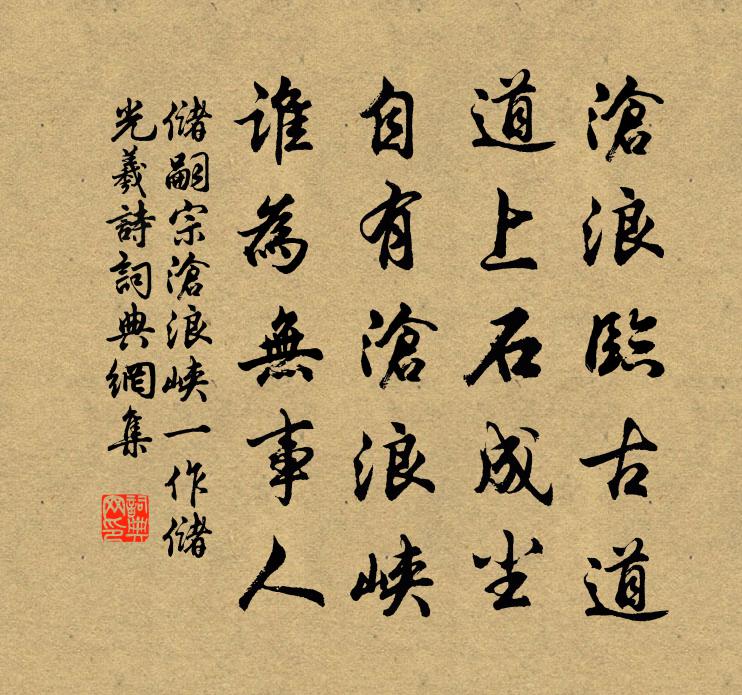 滄浪臨古道
道上石成尘
自有滄浪峽
誰為無事人
儲嗣宗滄浪峽一作儲
光羲詩詞典網集
詞典网印